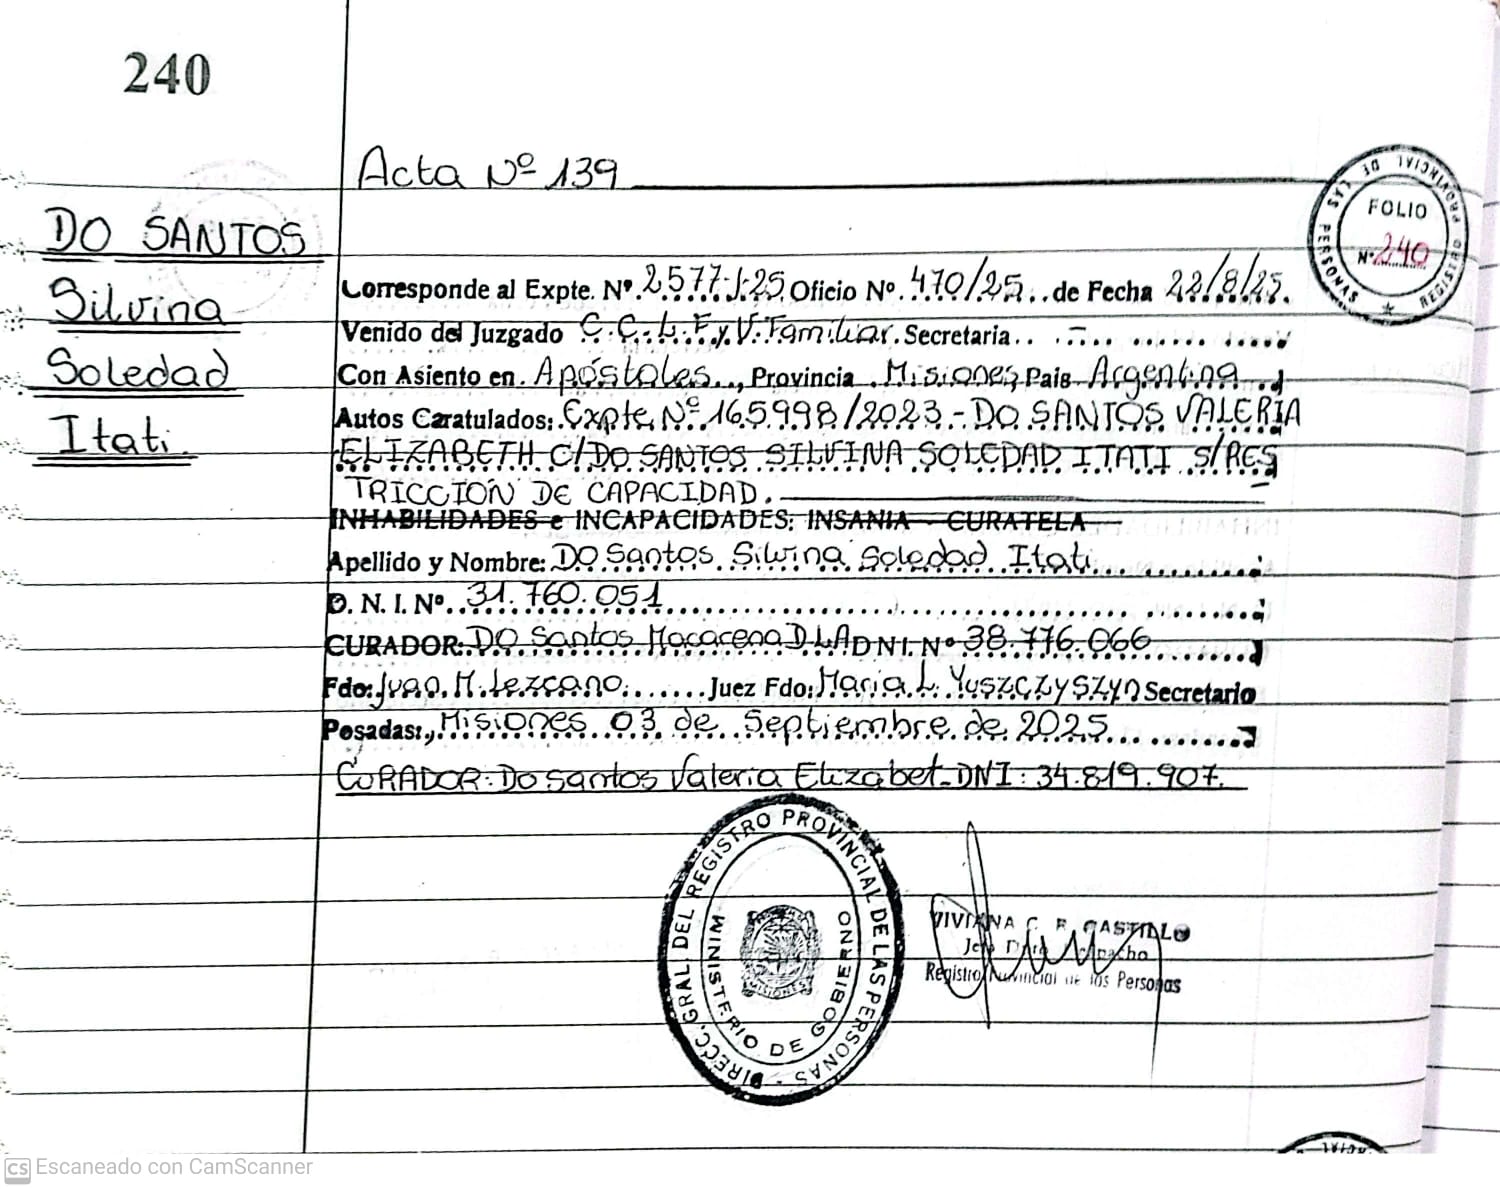 240
Acta Nº 139
DO SANTOS
Silvina
Soledad
Itati.
REGISTRO PROVINCIAL DE LAS PERSONAS
FOLIO
Nº 240
Corresponde al Expte. Nº. 2577-J-25 Oficio Nº. 470/25... de Fecha 22/8/25.
Venido del Juzgado C.C.L.F. y V. Familiar. Secretaria.. . - . .
Con Asiento en. Apóstoles.., Provincia . Misiones, Pais Argentina
Autos Caratulados: Expte. Nº 165998/2023.- DO SANTOS VALERIA
ELIZABETH C/DO SANTOS SILVINA SOLEDAD ITATI S/RES
TRICCIÓN DE CAPACIDAD.
INHABILIDADES e INCAPACIDADES: INSANIA - CURATELA
Apellido y Nombre: DO Santos Silvina Soledad Itati.
D. N. I. Nº.. 31.760.051
CURADOR: DO Santos Macarena D.L.A DNI. Nº 38.776.066
Fdo: Juan. M. Lezcano. Juez Fdo: Maria L. Yuszczyszyn Secretario
Posadas:, Misiones 03 de Septiembre de 2025...
CURADOR: Do Santos Valeria Elizabet. DNI: 34.819.907.
DIRECC. GRAL. DEL REGISTRO PROVINCIAL DE LAS PERSONAS -
MINISTERIO DE GOBIERNO
MISIONES
VIVIANA C. R. CASTILLO
Jefa Dpto. Despacho
Registro Provincial de las Personas
CS Escaneado con CamScanner